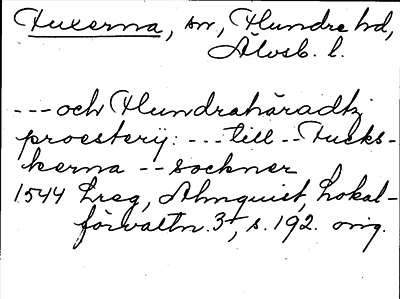 Fuxerna, sn, Flundre hd,
Älvsb. l.
--- och Flundrahäradtz
proesterij: --- till -- Fucks-
kerna -- sockner
1544 Lreg, Almquist, Lokal-
förvaltn. 3, s. 192. orig.